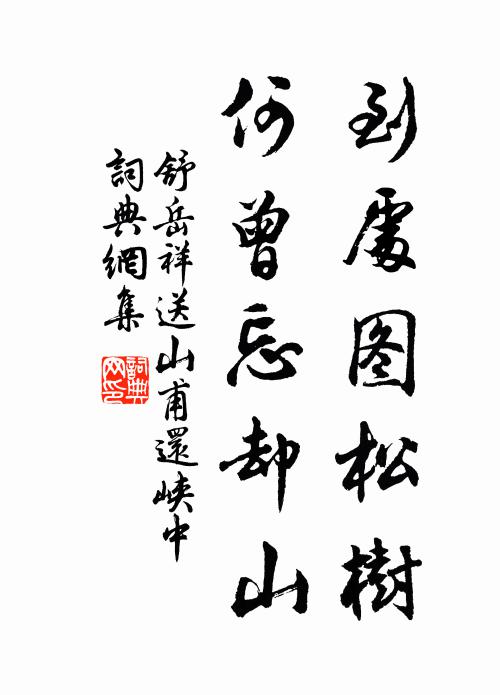 到處图松樹
何曾忘却山
舒岳祥送山甫還峡中
詞典網集
詞典網印